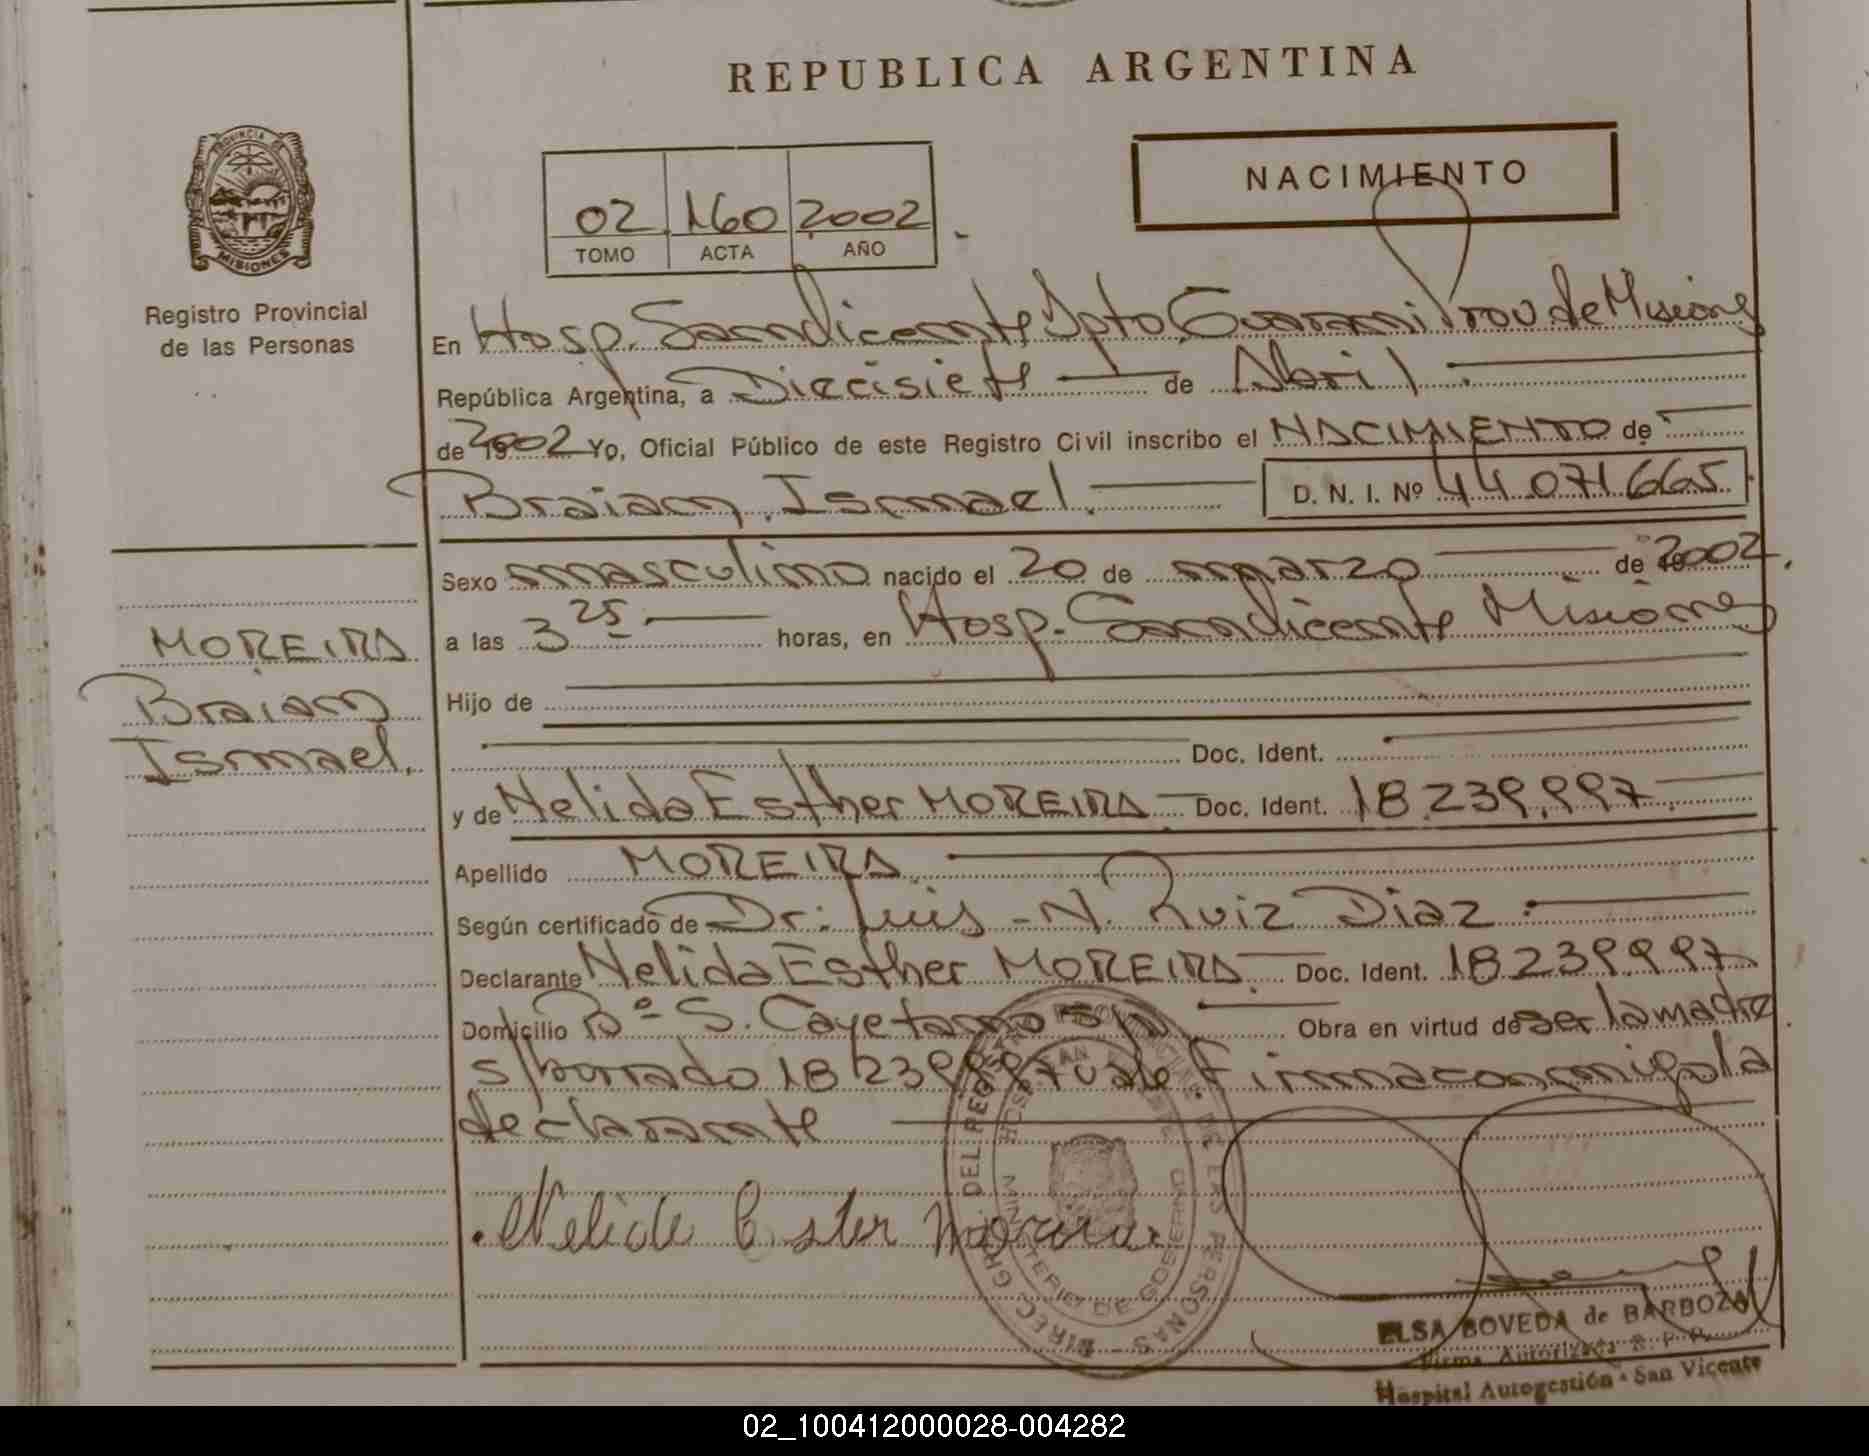 REPUBLICA ARGENTINA
PROVINCIA DE
MISIONES
Registro Provincial
de las Personas
02 160 2002
TOMO ACTA AÑO
NACIMIENTO
En Hosp. San Vicente Dpto Guarani Prov de Misiones
República Argentina, a Diecisiete de Abril
de 2002 Yo, Oficial Público de este Registro Civil inscribo el NACIMIENTO de
Braian Ismael D. N. I. Nº 44071665
Sexo masculino nacido el 20 de marzo de 2002.
a las 3 25 horas, en Hosp. San Vicente Misiones
Hijo de
Doc. Ident.
y de Nelida Esther MOREIRA Doc. Ident. 18.239.997
Apellido MOREIRA
Según certificado de Dr: Luis N. Ruiz Diaz
Declarante Nelida Esther MOREIRA Doc. Ident. 18239997
Domicilio Bº S. Cayetano s/n Obra en virtud de ser la madre
s/borrado 18239997 vale Firma conmigo la
declarante
MOREIRA
Braian
Ismael.
Nelida Ester Moreira
DIREC. GRAL. DEL REGISTRO PROVINCIAL DE LAS PERSONAS
MINISTERIO DE GOBIERNO
HOSP. SAN VICENTE
ELSA BOVEDA de BARBOZA
Firma Autorizada R. P. P.
Hospital Autogestión - San Vicente
02_100412000028-004282